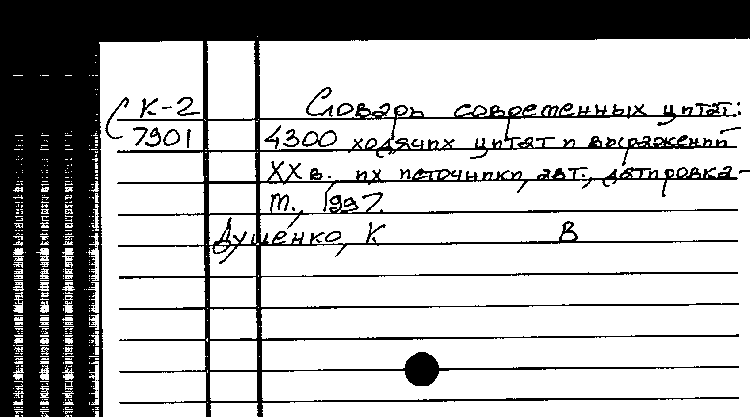 К-2 Словарь современных цитат:
7901 4300 ходячих цитат и выражений
XX в., их источники, авт., датировка-
М., 1997.
Душенко, К В